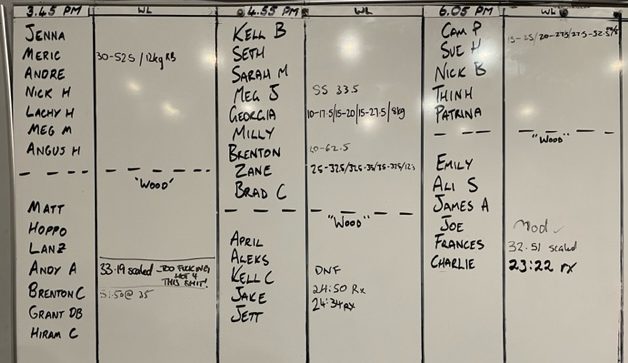 3.45 PM WL
JENNA
MERIC 30-52.5 /12kg RB
ANDRE
NICK H
LACHY H
MEG M
ANGUS H
"WOOD"
MATT
HOPPO
LANZ
ANDY A 33.19 scaled TOO FUCKING
HOT 4
THIS SHIT!
BRENTON C 31.50 @ 35
GRANT DB
HIRAM C
4.55 PM WL
KELL B
SETH
SARAH M
MEG J SS 33.5
GEORGIA 10-17.5/15-20/15-27.5/8kg
MILLY
BRENTON 20-62.5
ZANE
BRAD C
"WOOD"
APRIL
ALEKS
KELL C DNF
JAKE 24:50 Rx
JETT 24:34 RX
6.05 PM WL
CAM P
SUE H
NICK B
THINH
PATRINA
"WOOD"
EMILY
ALI S
JAMES A
JOE Mod
FRANCES 32.51 scaled
CHARLIE 23:22 rx